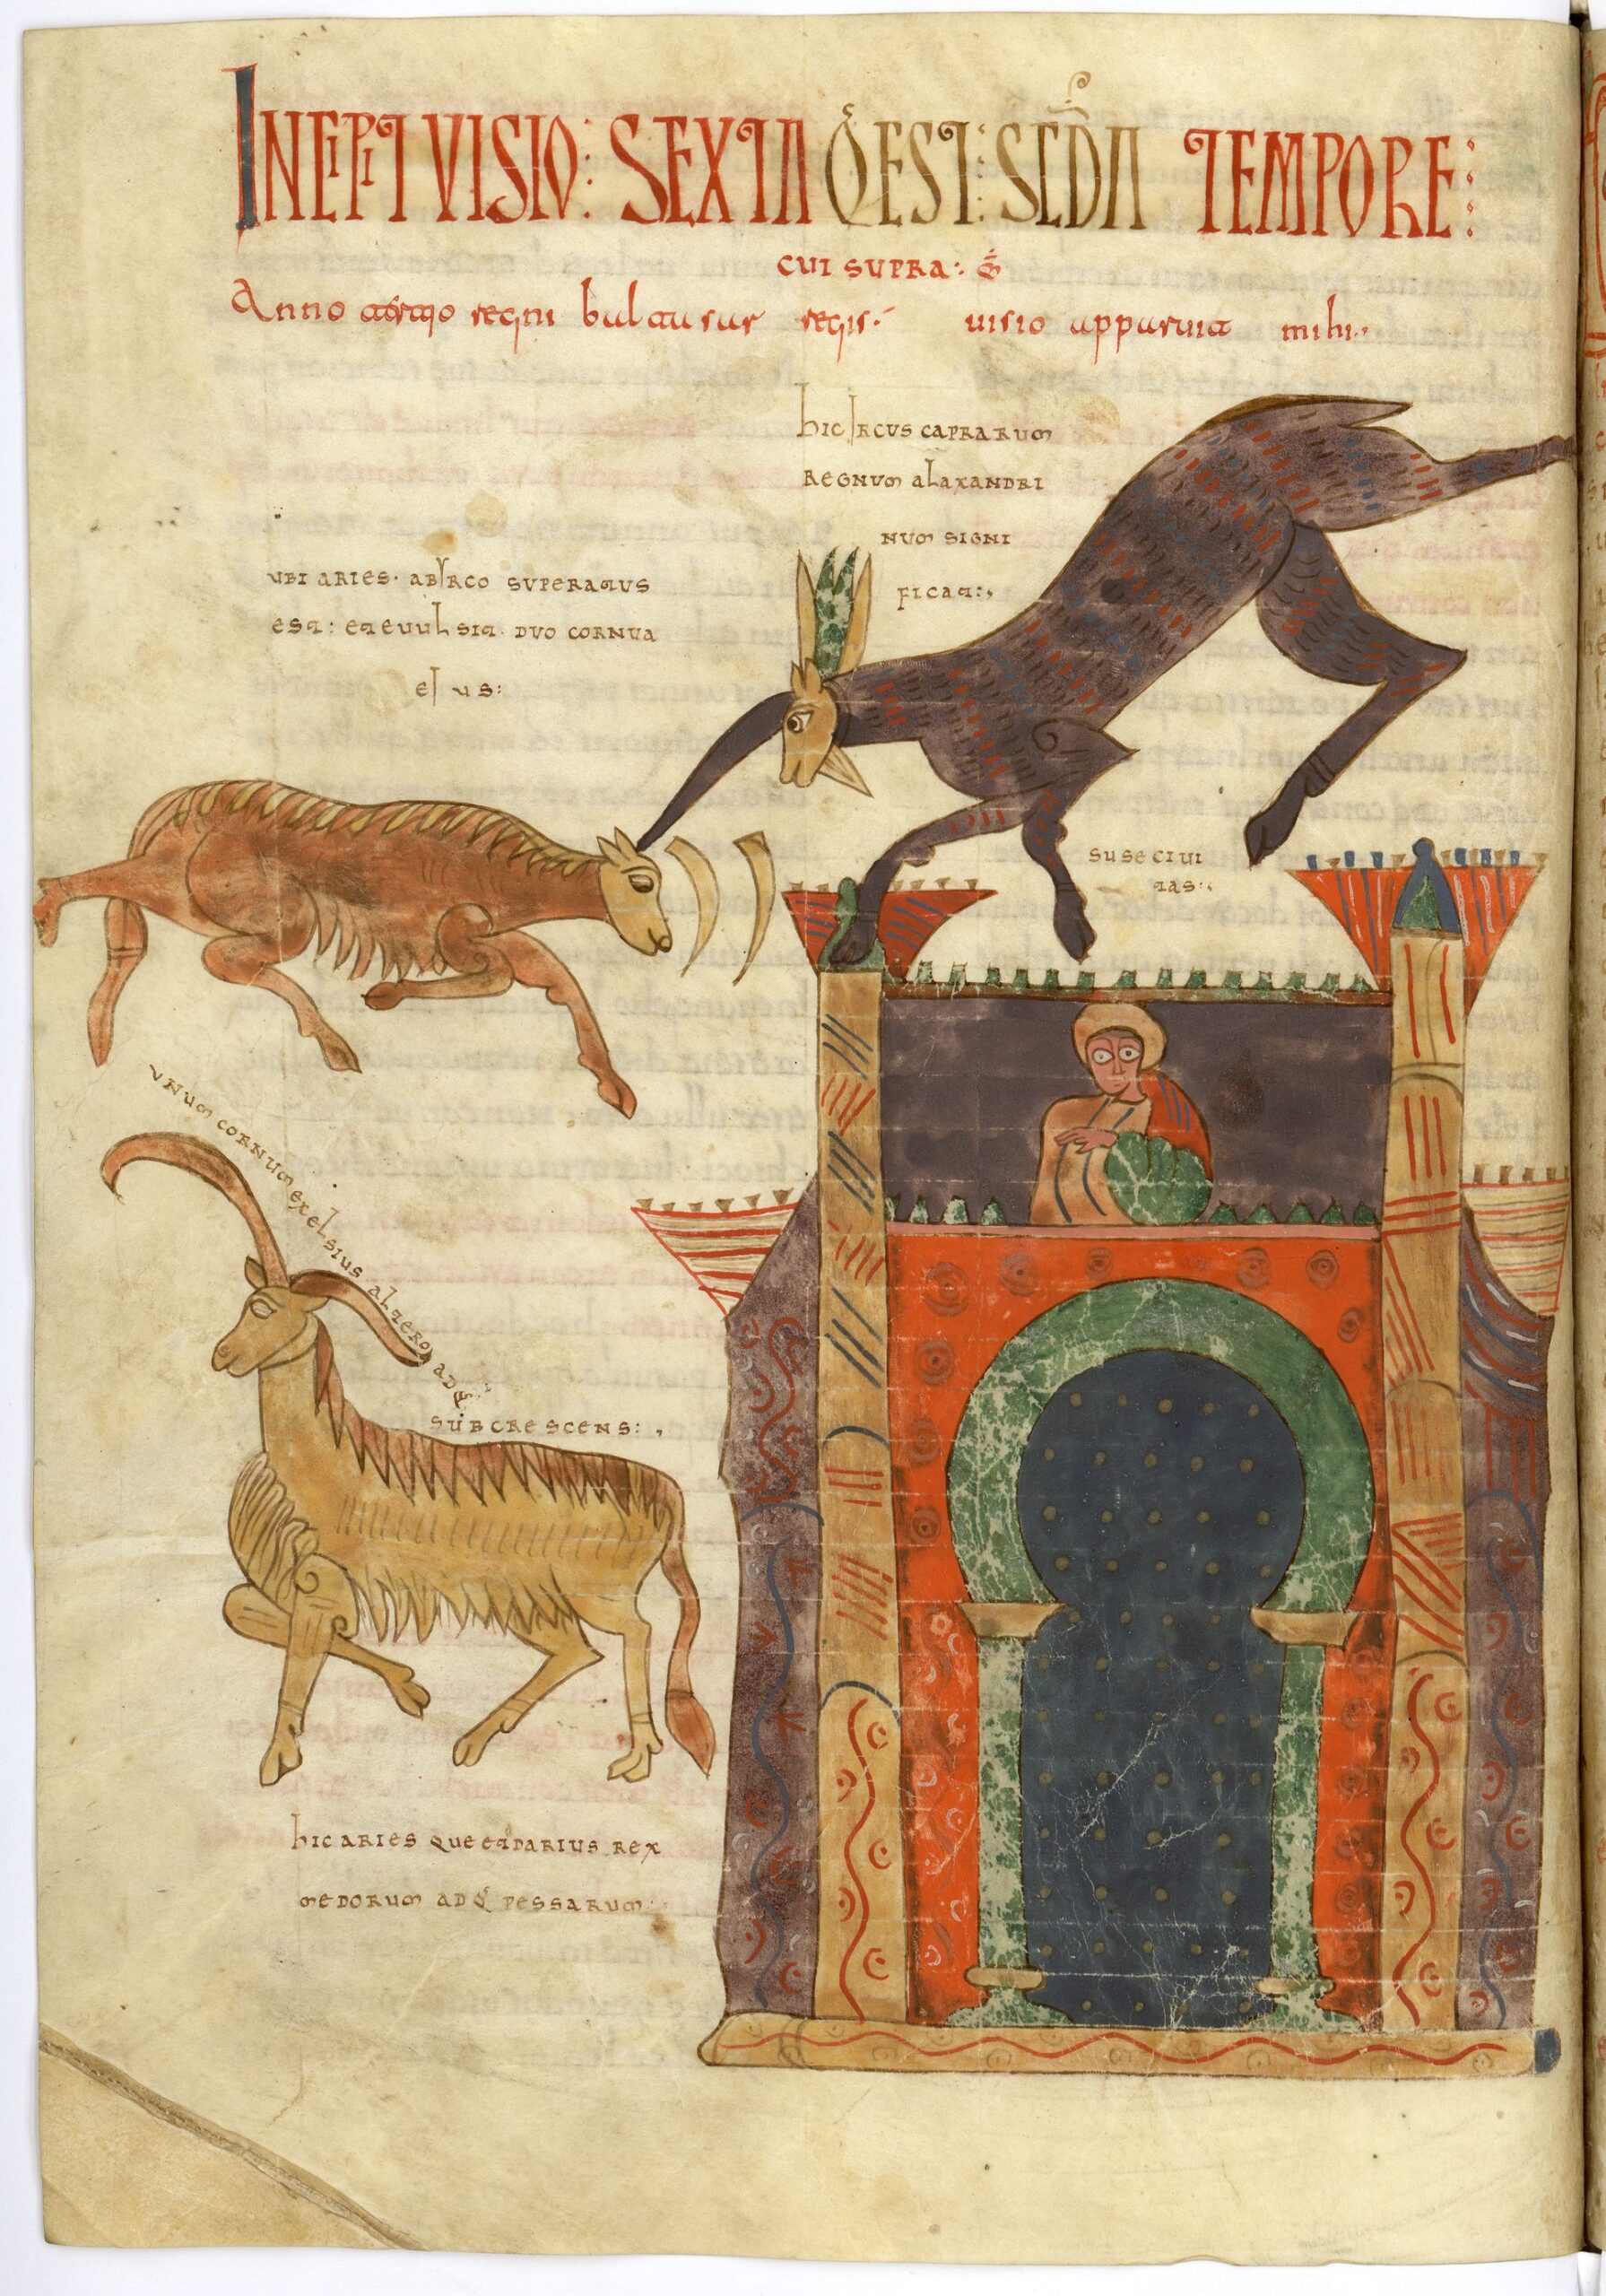 INCIPIT VISIO: SEXTA QEST: SCDA TEMPORE:
CUI SUPRA:
Anno tertio regni baltasar regis: uisio apparuit mihi
hic IRCUS CAPRARUM
REGNUM ALAXANDRI
NUM SIGNI
FICAT:,
UBI ARIES. AB IRCO SUPERATUS
EST: ET EUULSIT. DUO CORNUA
EIUS:
SUSE CIUI
TAS:,
UNUM CORNUM EXCELSIUS ALTERO ADQ
SUBCRESCENS:,
hIC ARIES QUE ET DARIUS REX
MEDORUM ADQ PESSARUM: